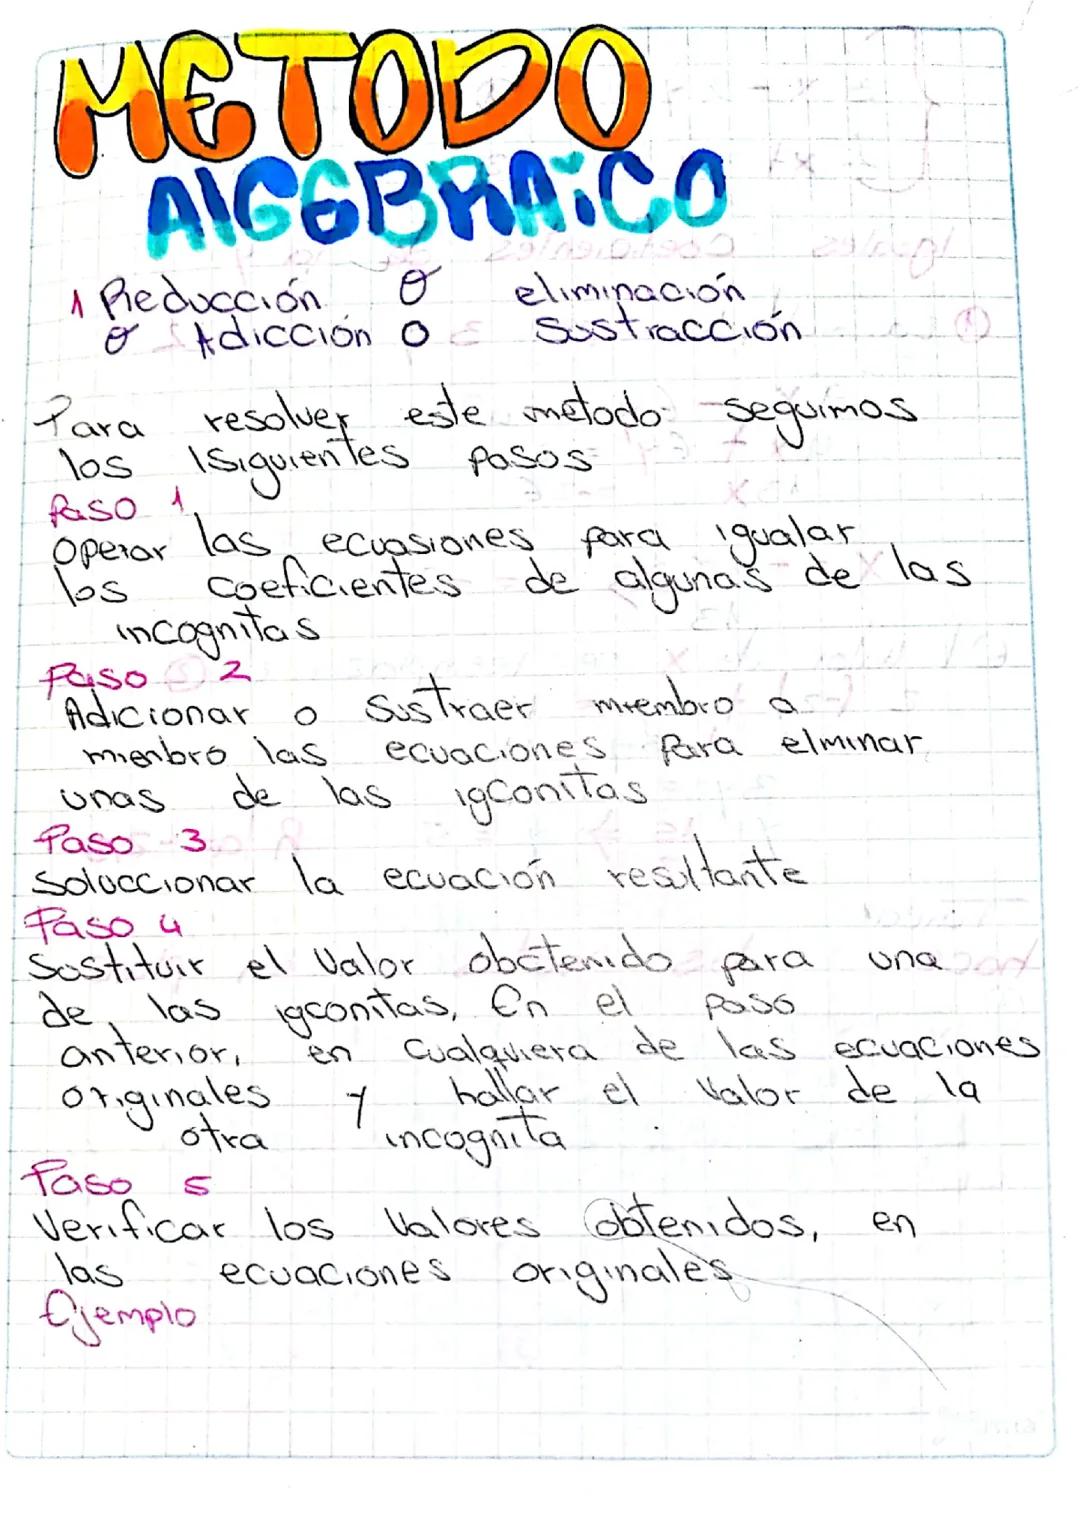 METODO
AlGEBRAiCO
1 Reducción o eliminación
o Adicción o Sustracción
Para resolver este metodo seguimos
los siguientes pasos
Paso 1
Operar las ecuasiones para igualar
los coeficientes de algunas de las
incognitas
Paso 2
Adicionar o Sustraer miembro a
mienbro las ecuaciones para elminar
unas de las igconitas
Paso 3
Soluccionar la ecuación resultante
Paso 4
Sostituir el Valor obctenido para una
de las igconitas, En el paso
anterior, en cualquiera de las ecuaciones
originales y hallar el Valor de la
otra incognita
Paso 5
Verificar los Valores obtenidos, en
las ecuaciones originales
Ejemplo